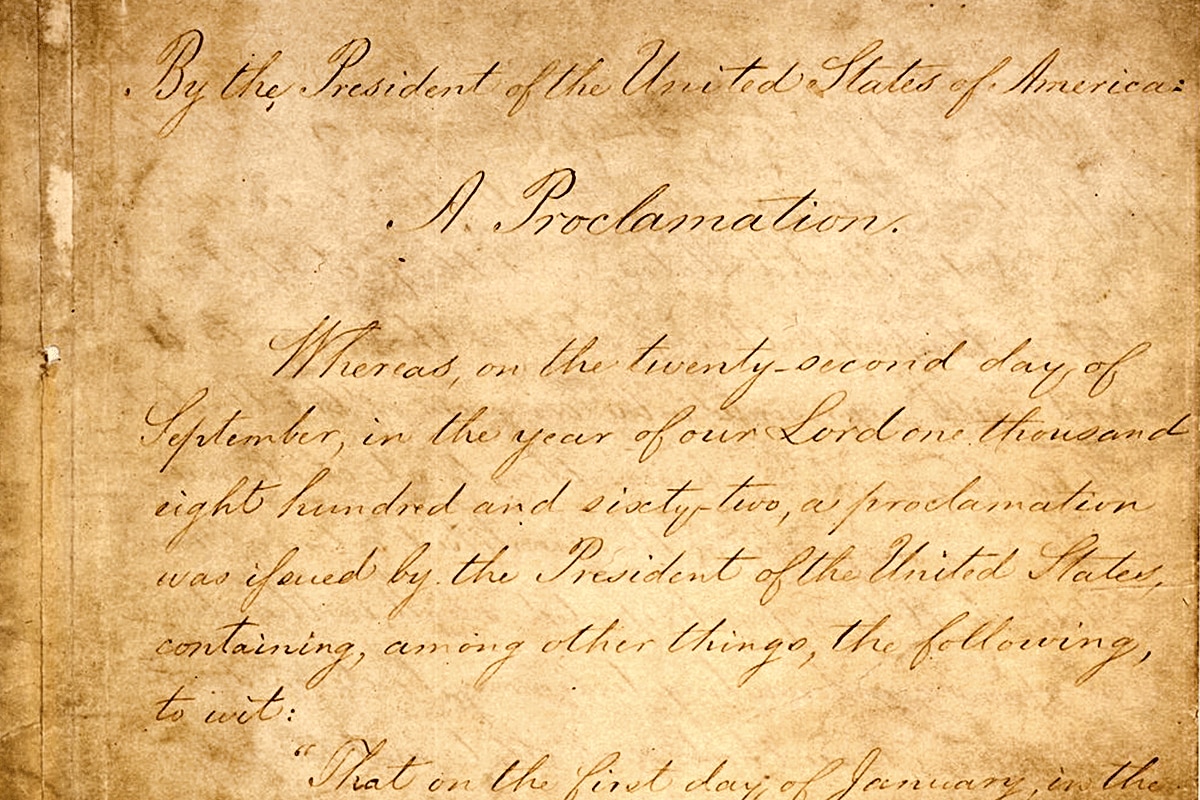 By the President of the United States of America:
A Proclamation.
Whereas, on the twenty-second day of
September, in the year of our Lord one thousand
eight hundred and sixty-two, a proclamation
was issued by the President of the United States,
containing, among other things, the following,
to wit:
"That on the first day of January, in the